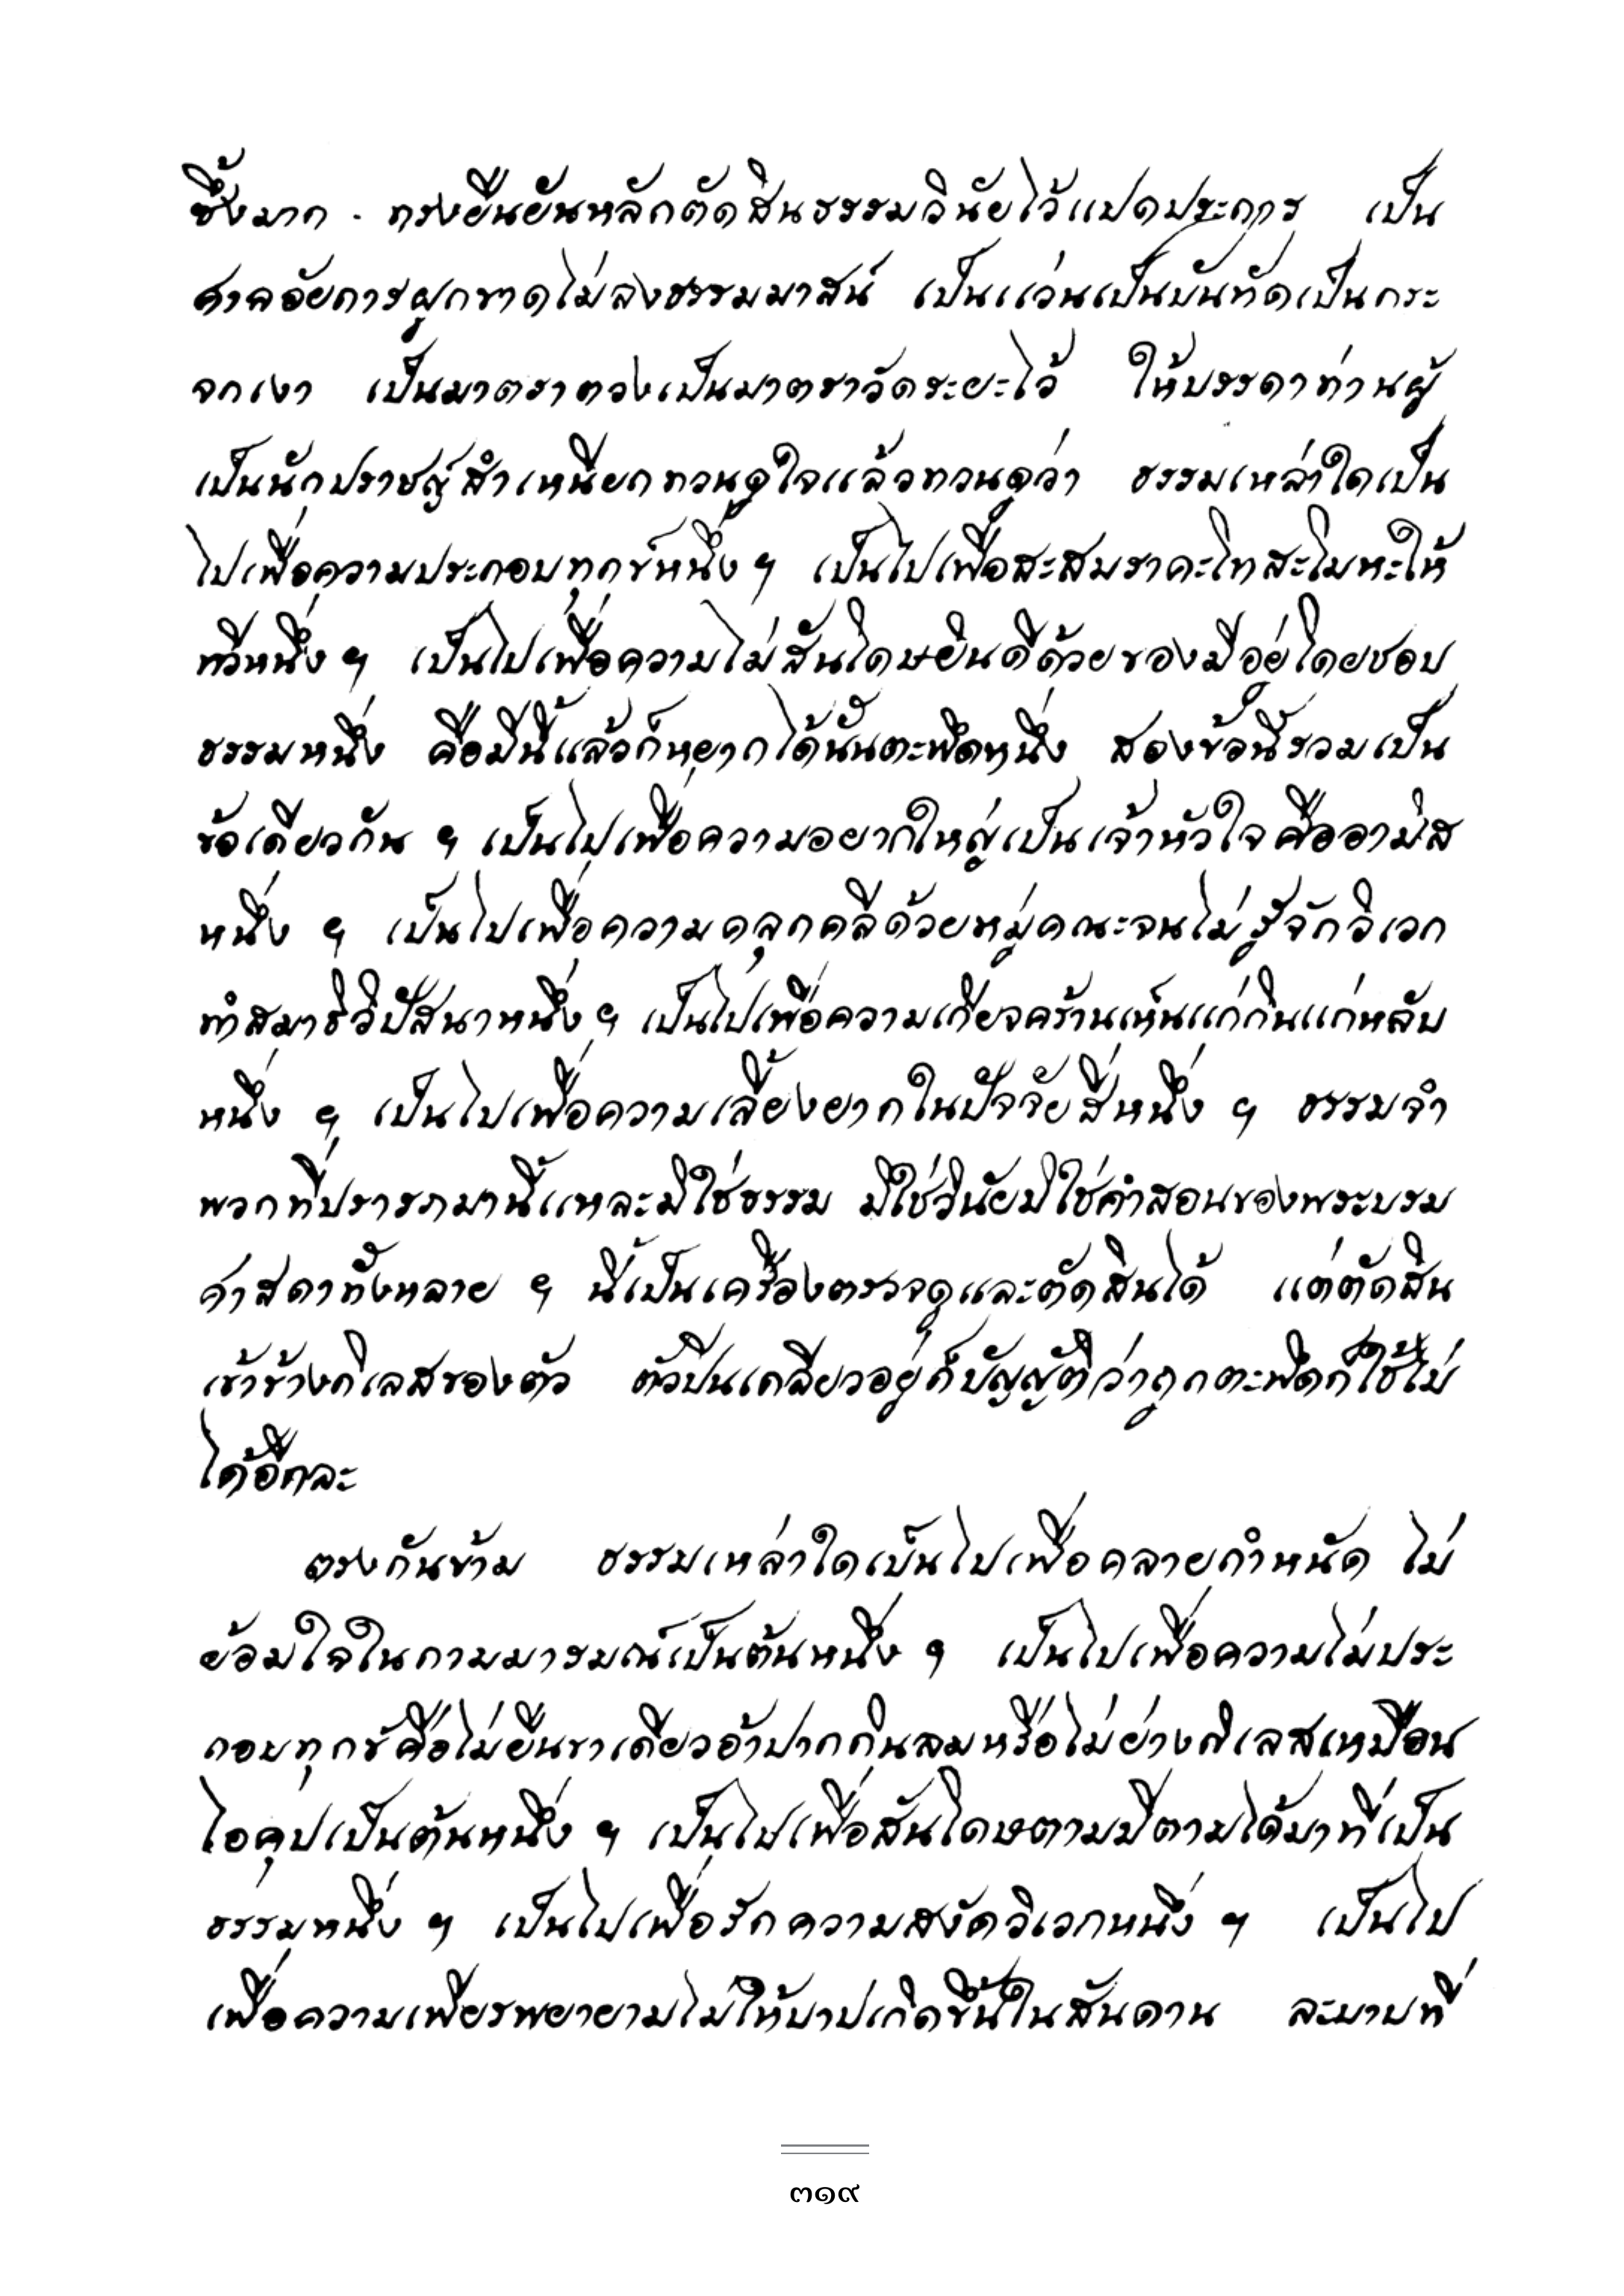 ซึ้งมาก . ทรงยืนยันหลักตัดสินธรรมวินัยไว้แปดประการ เป็น
ศาลอัยการผูกขาดไม่ลงธรรมมาสน์ เป็นแว่นเป็นบันทัดเป็นกระ
จกเงา เป็นมาตราตวงเป็นมาตราวัดระยะไว้ ให้บรรดาท่านผู้
เป็นนักปราชญ์สำเหนียกทวนดูใจแล้วทวนดูว่า ธรรมเหล่าใดเป็น
ไปเพื่อความประกอบทุกข์หนึ่ง ฯ เป็นไปเพื่อสะสมราคะโทสะโมหะให้
ทวีหนึ่ง ฯ เป็นไปเพื่อความไม่สันโดษยินดีด้วยของมีอยู่โดยชอบ
ธรรมหนึ่ง คือมีนี้แล้วก็หยากได้นั้นตะพึดหนึ่ง สองข้อนี้รวมเป็น
ข้อเดียวกัน ฯ เป็นไปเพื่อความอยากใหญ่เป็นเจ้าหัวใจคืออามิส
หนึ่ง ฯ เป็นไปเพื่อความคลุกคลีด้วยหมู่คณะจนไม่รู้จักวิเวก
ทำสมาธิวิปัสนาหนึ่ง ฯ เป็นไปเพื่อความเกียจคร้านเห็นแก่กินแก่หลับ
หนึ่ง ฯ เป็นไปเพื่อความเลี้ยงยากในปัจจัยสี่หนึ่ง ฯ ธรรมจำ
พวกที่ปรารภมานี้แหละมิใช่ธรรม มิใช่วินัยมิใช่คำสอนของพระบรม
ศาสดาทั้งหลาย ฯ นี้เป็นเครื่องตรวจดูและตัดสินได้ แต่ตัดสิน
เข้าข้างกิเลสของตัว ตัวปีนเกลียวอยู่ก็บัญญัติว่าถูกตะพึดก็ใช้ไม่
ได้อีกละ
ตรงกันข้าม ธรรมเหล่าใดเป็นไปเพื่อคลายกำหนัด ไม่
ย้อมใจในกามมารมณ์เป็นต้นหนึ่ง ฯ เป็นไปเพื่อความไม่ประ
กอบทุกข์คือไม่ยืนขาเดียวอ้าปากกินลมหรือไม่ย่างกิเลสเหมือน
ไอคุปเป็นต้นหนึ่ง ฯ เป็นไปเพื่อสันโดษตามมีตามได้มาที่เป็น
ธรรมหนึ่ง ฯ เป็นไปเพื่อรักความสงัดวิเวกหนึ่ง ฯ เป็นไป
เพื่อความเพียรพยายามไม่ให้บาปเกิดขึ้นในสันดาน ละบาปที่
๓๑๙